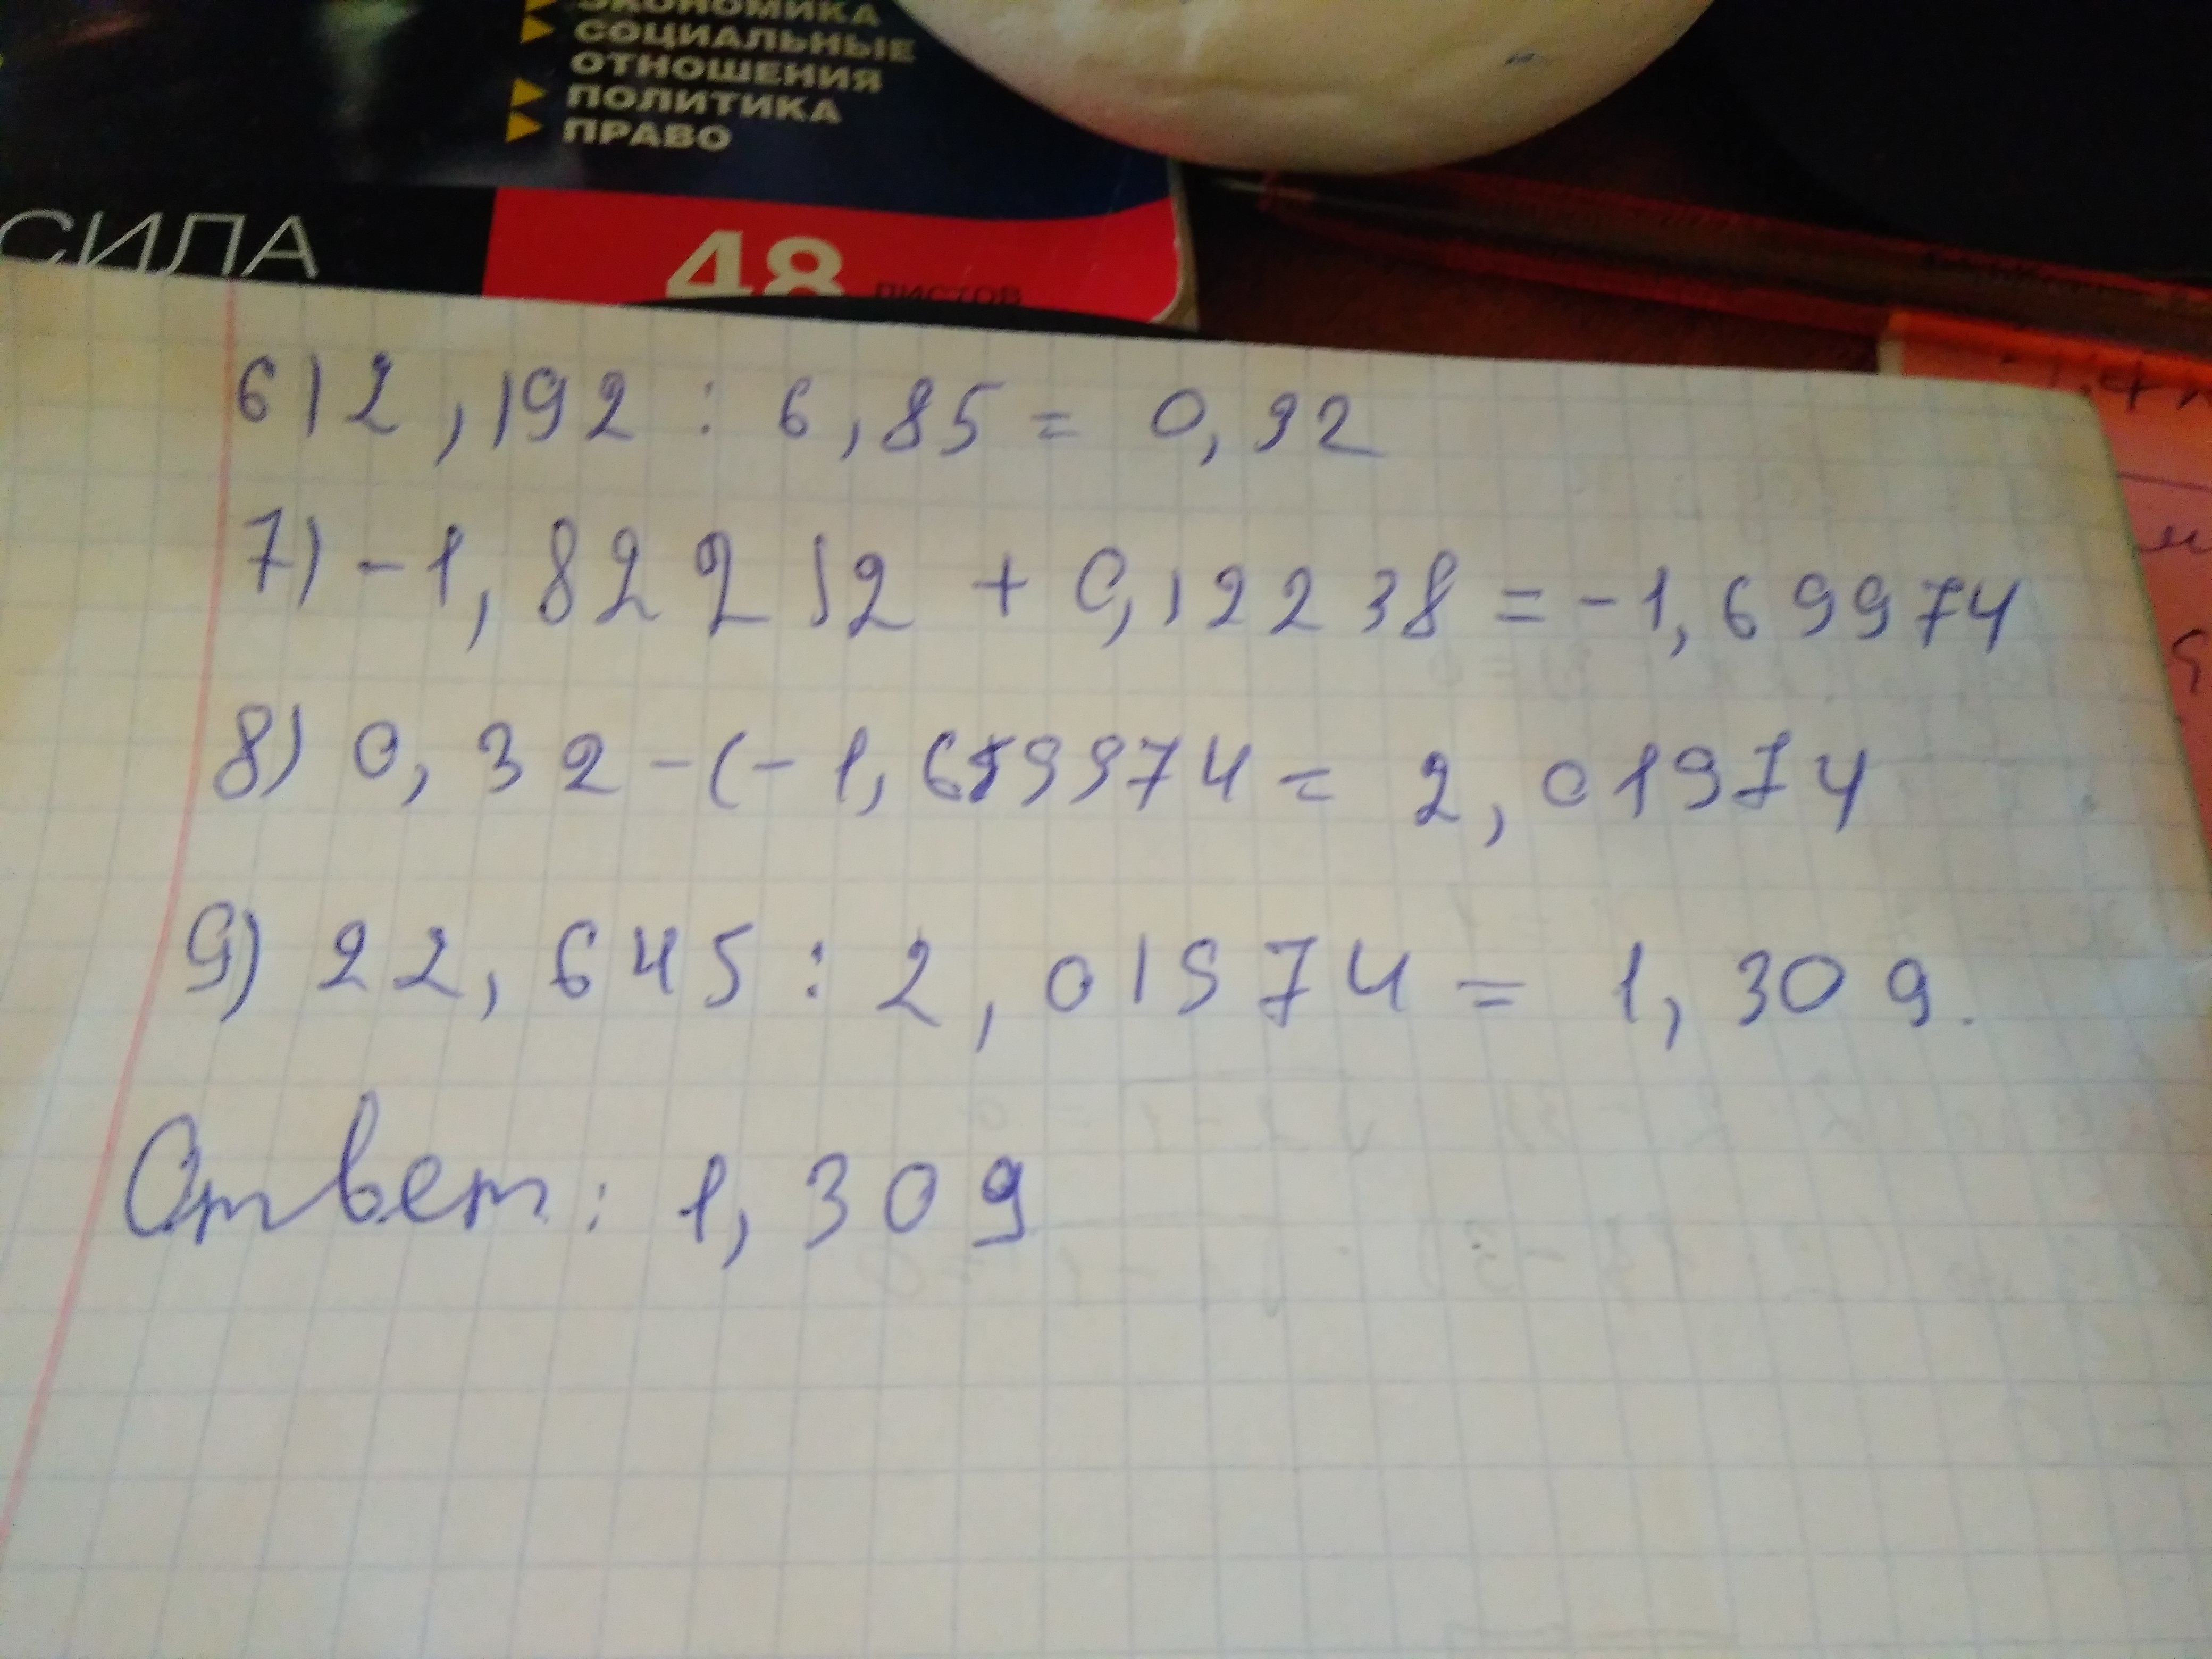 ЭКОНОМИКА
СОЦИАЛЬНЫЕ
ОТНОШЕНИЯ
ПОЛИТИКА
ПРАВО
СИЛА
48 листов
612,192 : 6,85 = 0,32
7) -1,82212 + 0,12238 = -1,69974
8) 0,32 - (-1,699974 = 2,01974
9) 22,645 : 2,01974 = 1,309.
Ответ: 1,309